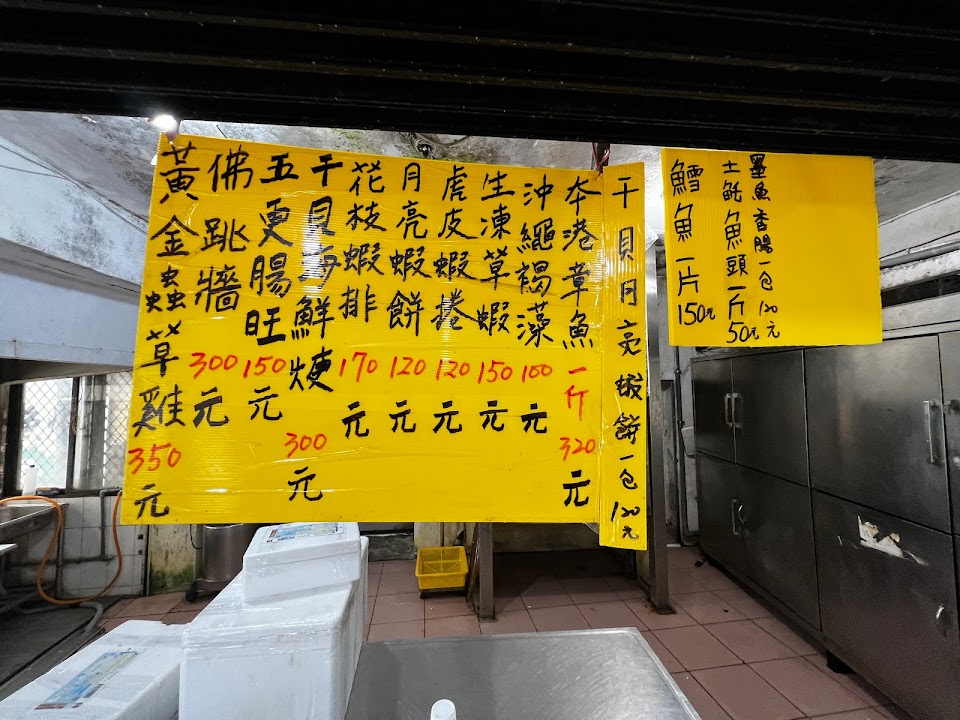 墨魚香腸一包120元
土魠魚頭一斤50元
鱈魚一片150元
干貝月亮蝦餅一包120元
本港章魚一斤320元
沖繩褐藻100元
生凍草蝦150元
虎皮蝦捲120元
月亮蝦餅120元
花枝蝦排170元
干貝海鮮焿300元
五更腸旺150元
佛跳牆300元
黃金蟲草雞350元